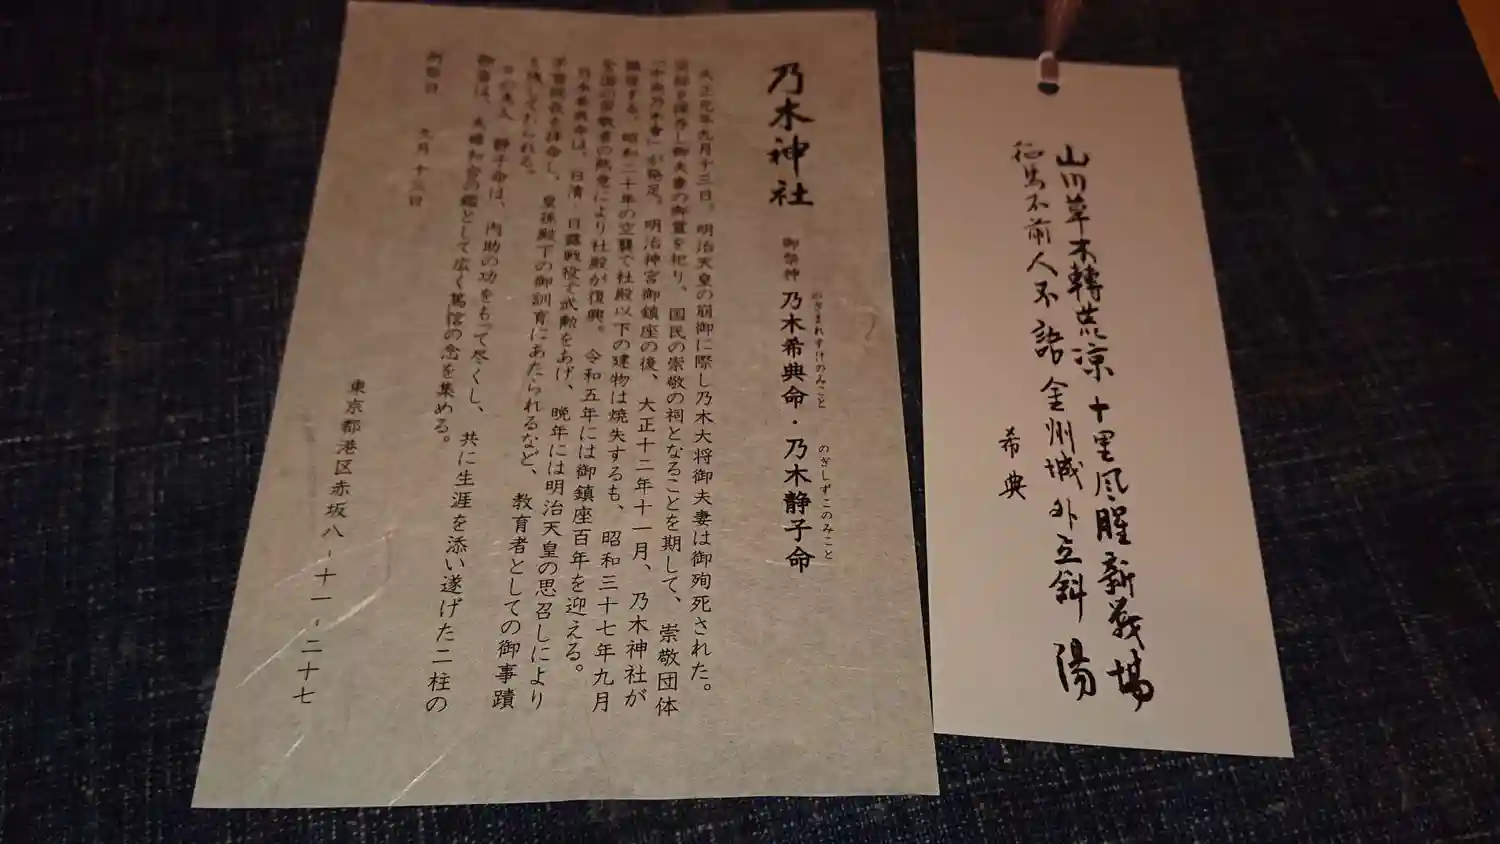 山川草木轉荒凉十里風腥新戰場
征馬不前人不語金州城外立斜陽
希典
乃木神社
御祭神 乃木希典命・乃木静子命
のぎまれすけのみこと のぎしずこのみこと
大正元年九月十三日、明治天皇の崩御に際し乃木大将御夫妻は御殉死された。
御夫妻の御霊を祀り、国民の崇敬の祠となることを期して、崇敬団体
「中央乃木會」が発足。明治神宮御鎮座の後、大正十二年十一月、乃木神社が
する。昭和二十年の空襲で社殿以下の建物は焼失するも、昭和三十七年九月
全国の崇敬者の熱意により社殿が復興。令和五年には御鎮座百年を迎える。
乃木希典命は、日清・日露戦役で武勲をあげ、晩年には明治天皇の思召しにより
学習院長を拝命し、皇孫殿下の御訓育にあたられるなど、教育者としての御事蹟
も残しておられる。
夫人 静子命は、内助の功をもって尽くし、共に生涯を添い遂げた二柱の
御霊は、夫婦和合の鑑として広く篤信の念を集める。
例祭日 九月十三日
東京都港区赤坂八-十一-二十七